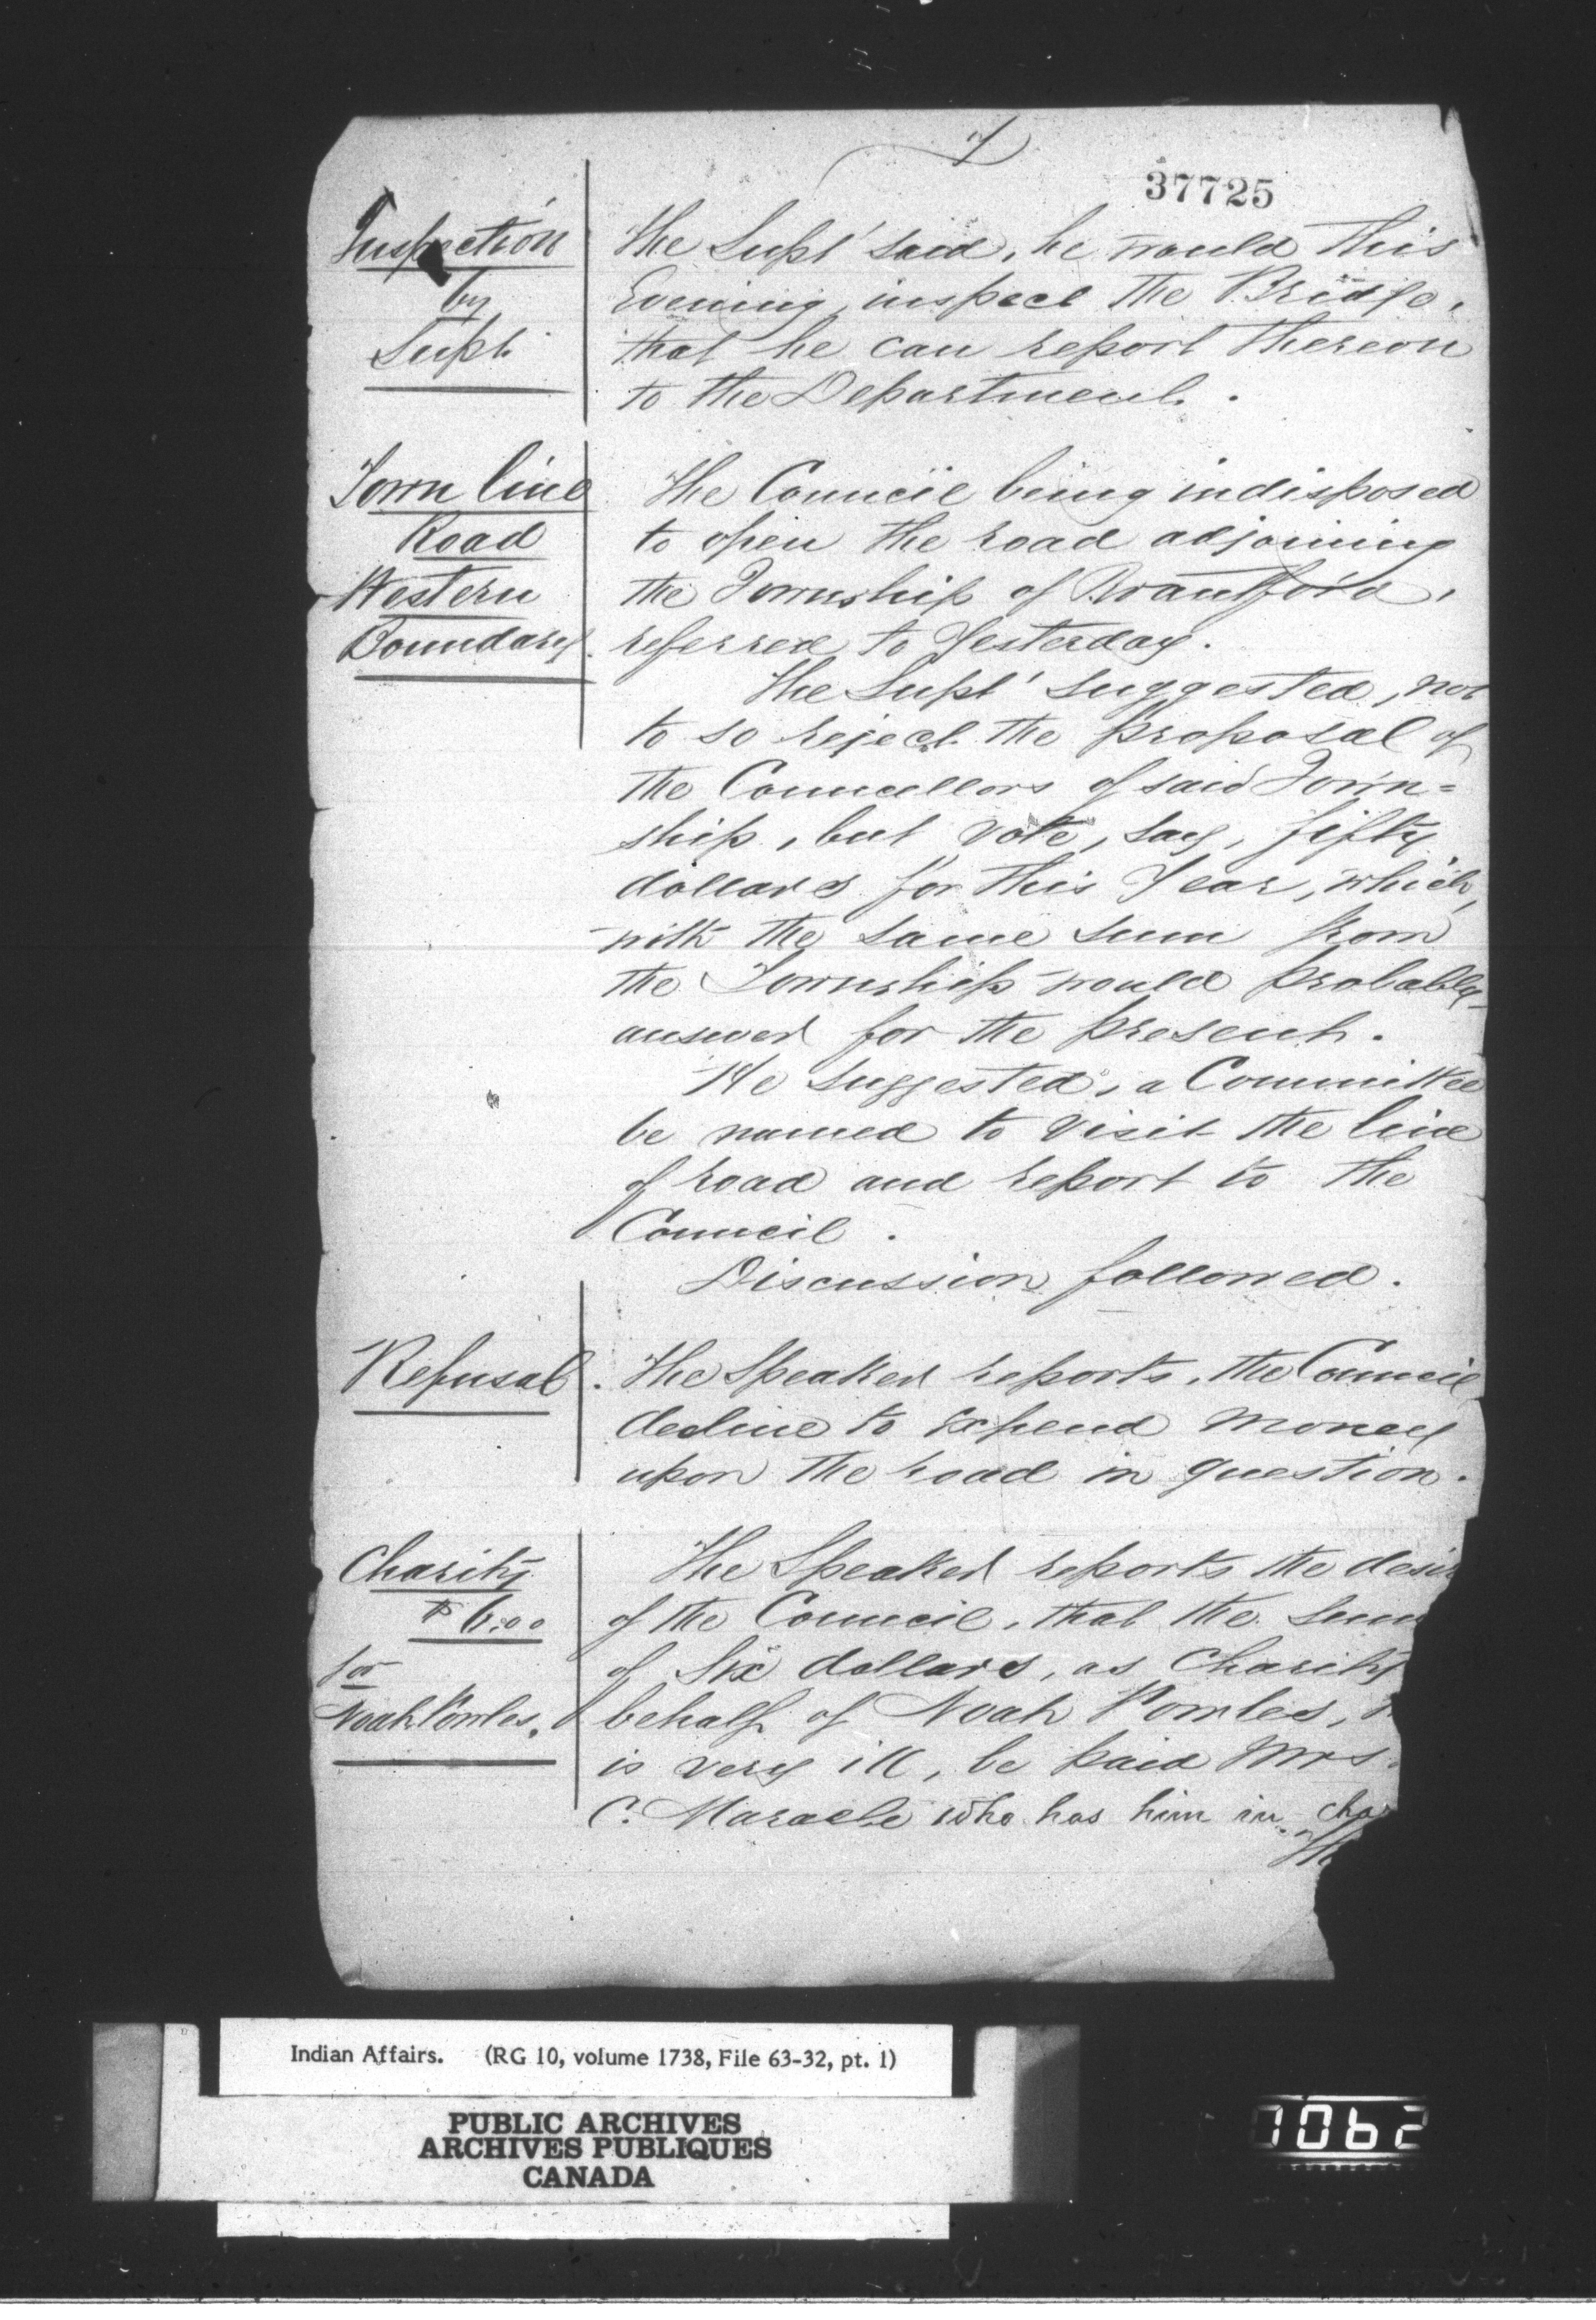 37725
Inspection
by
Supt.
The Supt' said, he would this
Evening, inspect the Bridge,
that he can report thereon
to the Department.
Town line
Road
Western
Boundary.
The Council being indisposed
to open the road adjoining
the Township of Brantford,
referred to Yesterday.
The Supt' suggested, not
to so reject the proposal of
the Councellors of said Town=
ship, but vote, say, fifty
dollars for this Year, which,
with the same sum from
the Township would probably
answer for the present.
He suggested, a Committee
be named to visit the line
of road and report to the
Council.
Discussion followed.
Refusal.
The Speaker reports, the Council
decline to expend money
upon the road in question.
Charity
$6.00
for
Noah Powles.
The Speaker reports the desir
of the Council, that the sum
of Six dollars, as Charity
behalf of Noah Powles,
is very ill, be paid Mrs.
C. Maracle who has him in char
Th
Indian Affairs. (RG 10, volume 1738, File 63-32, pt. 1)
PUBLIC ARCHIVES
ARCHIVES PUBLIQUES
CANADA
1062